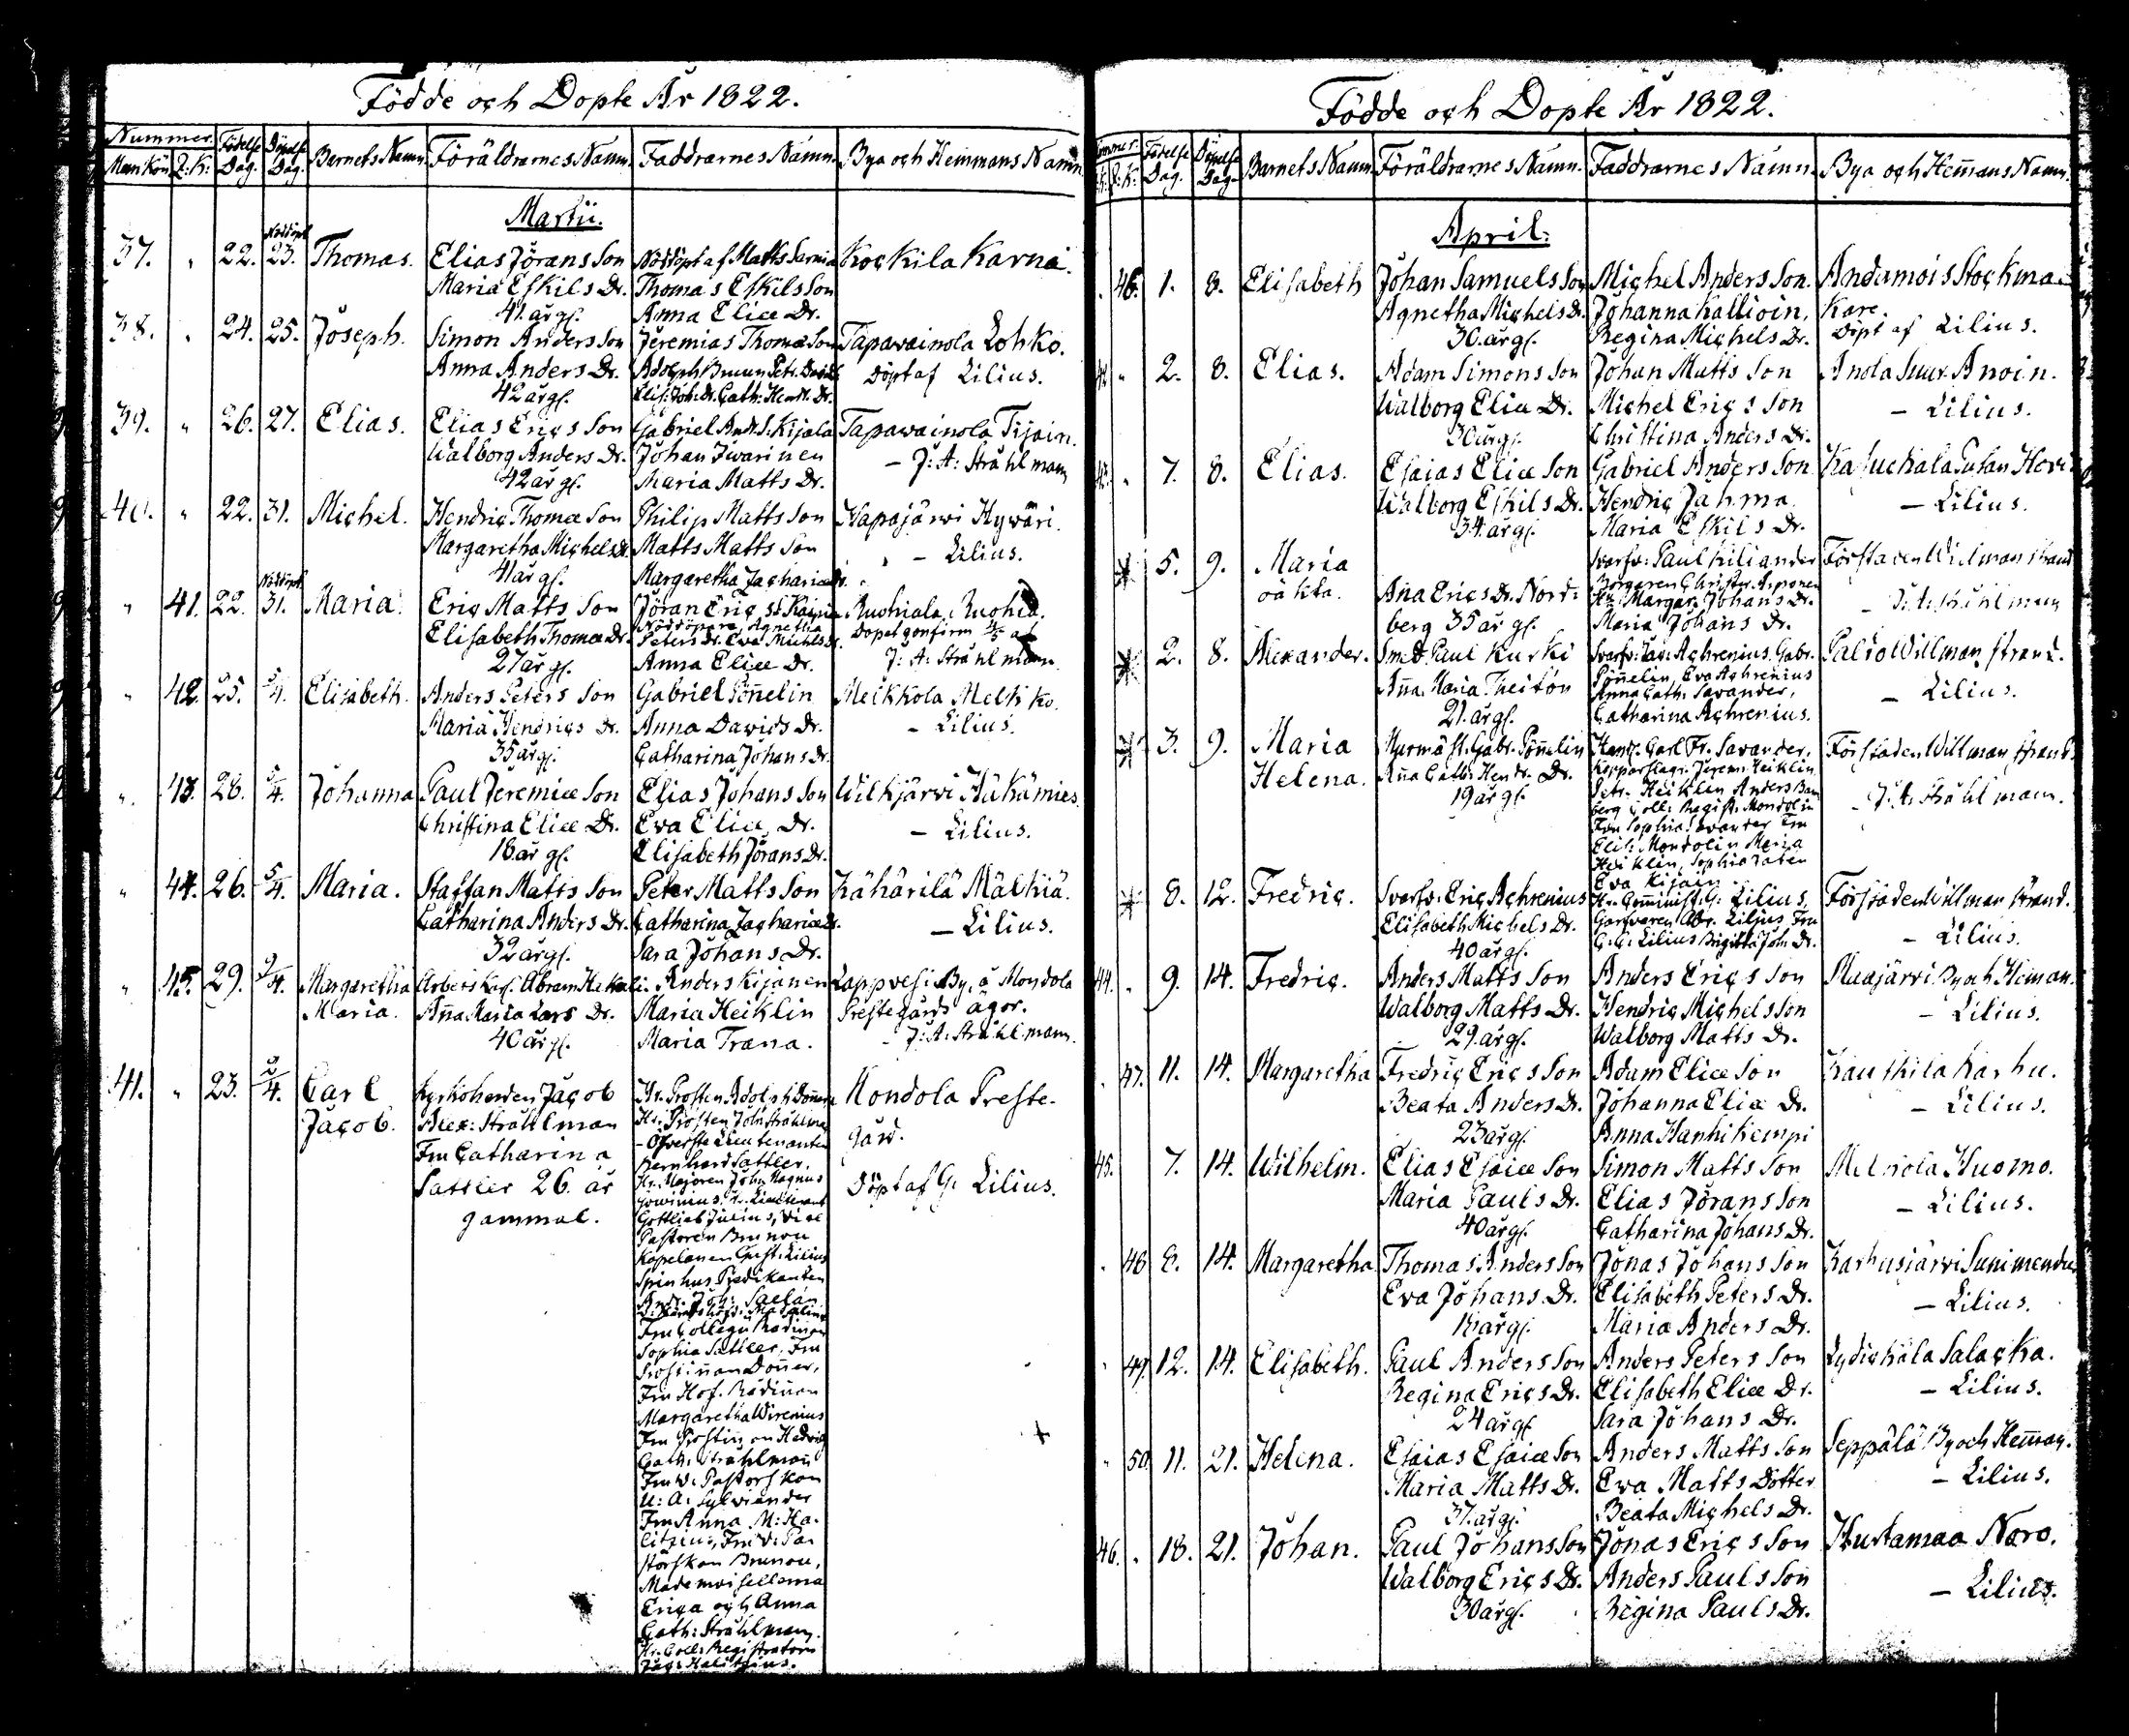 Födde och Döpte År 1822.
Nummer. Födelse Döpelse Barnets Namn. Föräldrarnes Namn. Faddrarnes Namn. Bya och Hemmans Namn.
Man Kön Q: K: Dag. Dag.
Martii.
Nöddöpt
37. " 22. 23. Thomas. Elias Jörans Son Nöddöpt af Matts Sarnia Kockila Karna.
Maria Eskils Dr. Thomas Eskils Son
41. år gl. Anna Eliæ Dr.
38. " 24. 25. Joseph. Simon Anders Son Jeremias Thomæ Son Tapavainola Lohko.
Anna Anders Dr. Adolph Brunn Petr. Davids Döpt af Lilius.
42 år gl. Elis: Joh: Dr. Cath: Hendr. Dr.
39. " 26. 27. Elias. Elias Erics Son Gabriel And. S. Kijala Tapawainola Tijain.
Walborg Anders Dr. Johan Iwarinen – J: A: Strahlman
42 år gl. Maria Matts Dr.
40. " 22. 31. Michel. Hendric Thomæ Son Philip Matts Son Hapajärwi Hywäri.
Margaretha Michels Dr. Matts Matts Son – Lilius.
41 år gl. Margaretha Zachariæ Dr.
Nöddöpt
" 41. 22. 31. Maria. Eric Matts Son Jöran Eric S: Kaipia Ruohiala Ruohia.
Elisabeth Thomæ Dr. Nöddöpare, Agnetha Peters Dr. Eva Michels Dr. Dopet confirm 4/5 af
27 år gl. Anna Eliæ Dr. J: A: Strahlman.
" 42. 25. 5/4. Elisabeth. Anders Peters Son Gabriel Pönnelin Melkkola Melkko.
Maria Hendrics Dr. Anna Davids Dr. – Lilius.
35 år gl. Catharina Johans Dr.
" 43. 28. 5/4. Johanna Paul Jeremiæ Son Elias Johans Son Wilkjärvi Hükämies.
Christina Eliæ Dr. Eva Eliæ Dr. – Lilius.
18. år gl. Elisabeth Jörans Dr.
" 44. 26. 5/4. Maria. Staffan Matts Son Peter Matts Son Kähärilä Mälkiä.
Catharina Anders Dr. Catharina Zachariæ Dr. – Lilius.
32 år gl. Sara Johans Dr.
" 45. 29. 9/4. Margaretha Arbets Karl. Abram Anders Kijanen Lappvesi By, å Mondola
Maria. Anna Maria Lars Dr. Maria Heiklin Prestegårds ägor.
40 år gl. Maria Trana. – J: A: Strahlman.
41. " 23. 2/4. Carl Kyrkoherden Jacob Hr. Prosten Adolph Donner Mondola Preste-
Jacob. Alex: Strahlman Hr. Prosten Joh: Strahlman gård.
Fru Catharina – Öfverste Lieutenanten
Sattler 26. år Bernhard Sattler, Döpt af G. Lilius.
gammal. Hr. Majoren John Magnus
Hr. Lieutenant
Gottlieb Julius, Vice
Pastoren Brunou
Kapelanen Gust: Lilius
Spinhus Predikanten
And: Joh: Sallén
Fru Collegii Rådinnan
Sophia Sattler, Fru
Prostinnan Donner,
Fru Hof. Rådinnan
Margaretha Wirenius
Fru Prostinnan Hedvig
Cath: Strahlman
Fru V: Pastorskan
U: A: Sylviander
Fru Anna M: Ha-
litzius, Fru V: Pa-
storskan Brunou,
Mademoisellerna
Erica och Anna
Cath: Strahlman.
Hr. Coll: Registratorn
Jac: Halitzius.
Födde och Döpte År 1822.
Nummer. Födelse Döpelse Barnets Namn. Föräldrarnes Namn. Faddrarnes Namn. Bya och Hemmans Namn.
K: Q: K: Dag. Dag.
April:
" 46. 1. 8. Elisabeth Johan Samuels Son Michel Anders Son. Andamois Stockma-
Agnetha Michels Dr. Johanna Kallioin, Kare.
30. år gl. Regina Michels Dr. Döpt af Lilius.
42. " 2. 8. Elias. Adam Simons Son Johan Matts Son Anola Suur Anoin.
Walborg Eliæ Dr. Michel Erics Son – Lilius.
30 år gl. Christina Anders Dr.
43. " 7. 8. Elias. Esaias Eliæ Son Gabriel Anders Son Kasuckala Hovi
Walborg Eskils Dr. Hendric Jahma – Lilius.
34. år gl. Maria Eskils Dr.
5. 9. Maria Svarfv: Paul Kiliander Förstaden Wilmanstrand
oäkta. Ana Erics Dr. Nord- Borgaren Christer Arponen
berg 35 år gl. Hu Margar. Johans Dr. – J: A: Strahlman
Maria Johans Dr.
2. 8. Alexander. Smed. Paul Kurki Svarfv: Jac: Achrenius, Gabr. Pallo Willmanstrand.
Anna Maria Theiton Pönnelin, Eva Achrenius – Lilius.
21. år gl. Anna Cath: Savander,
Catharina Achrenius.
3. 9. Maria Murmäst. Gabr. Pönnelin Hand. Carl Fr. Savander, Förstaden Willmanstrand.
Helena. Anna Cath: Hendr. Dr. Kopparslag: Jerem: Heiklin
19 år gl. Petr. Heiklin Anders Bam – J: A: Strahlman.
berg Coll: Regist. Mondolin
Fru Sophia Savander Fru
Elis: Mondolin Maria
Heiklin, Sophia
Eva Kijain
8. 12. Fredric. Svarfv: Eric Achrenius Hr. Comminist. G: Lilius, Förstaden Willmanstrand.
Elisabeth Michels Dr. Garfvaren Abr. Lilius Fru – Lilius.
40 år gl. G: G: Lilius Brigitta Joh: Dr.
44. " 9. 14. Fredric. Anders Matts Son Anders Erics Son Muajärvi By och Heman.
Walborg Matts Dr. Hendric Michels Son – Lilius.
29. år gl. Walborg Matts Dr.
" 47. 11. 14. Margaretha Fredric Erics Son Adam Eliæ Son Kauskila Karhu.
Beata Anders Dr. Johanna Eliæ Dr. – Lilius.
23 år gl. Anna Hanhikempi
45. 7. 14. Wilhelm. Elias Esaiæ Son Simon Matts Son Metsola Huomo.
Maria Pauls Dr. Elias Jörans Son – Lilius.
40 år gl. Catharina Johans Dr.
" 48 8. 14. Margaretha Thomas Anders Son Jonas Johans Son Karhusjärvi
Eva Johans Dr. Elisabeth Peters Dr. – Lilius.
år gl. Maria Anders Dr.
" 49. 12. 14. Elisabeth. Paul Anders Son Anders Peters Son Lydickälä Salacka.
Regina Erics Dr. Elisabeth Eliæ Dr. – Lilius.
24 år gl. Sara Johans Dr.
" 50. 11. 21. Helena. Esaias Esaiæ Son Anders Matts Son Seppälä By och Heman.
Maria Matts Dr. Eva Matts Dotter – Lilius.
37. år gl. Beata Michels Dr.
46. " 18. 21. Johan. Paul Johans Son Jonas Erics Son Hurtamaa Noro.
Walborg Erics Dr. Anders Pauls Son – Lilius.
30 år gl. Regina Pauls Dr.